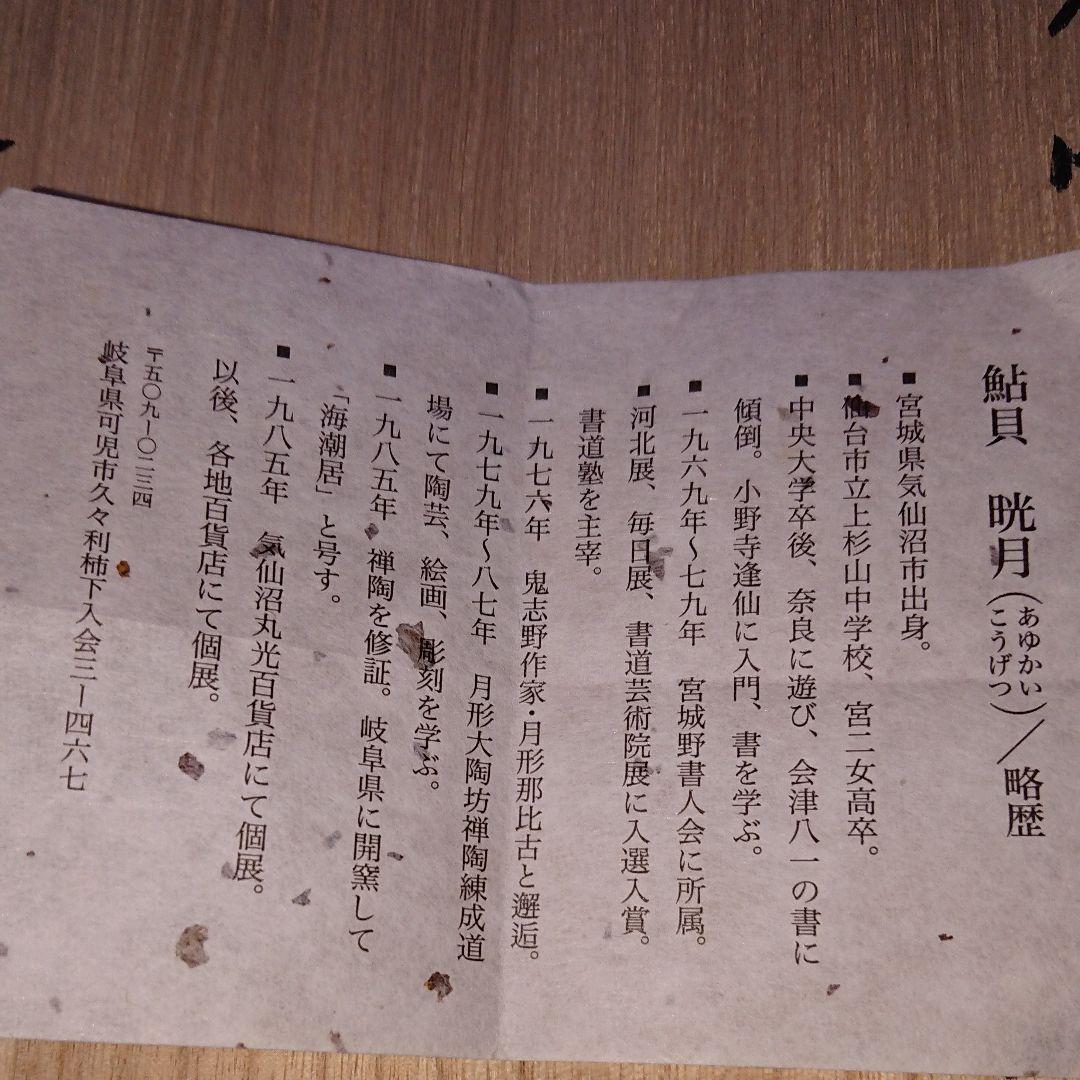 鮎貝　晄月（あゆかい　こうげつ）／略歴
■宮城県気仙沼市出身。
■仙台市立上杉山中学校、宮二女高卒。
■中央大学卒後、奈良に遊び、会津八一の書に
傾倒。小野寺逢仙に入門、書を学ぶ。
■一九六九年〜七九年　宮城野書人会に所属。
河北展、毎日展、書道芸術院展に入選入賞。
書道塾を主宰。
■一九七六年　鬼志野作家・月形那比古と邂逅。
■一九七九年〜八七年　月形大陶坊禅陶練成道
場にて陶芸、絵画、彫刻を学ぶ。
■一九八五年　禅陶を修証。岐阜県に開窯して
「海潮居」と号す。
■一九八五年　気仙沼丸光百貨店にて個展。
以後、各地百貨店にて個展。
〒五〇九ー〇二二四
岐阜県可児市久々利柿下入会三ー四六七